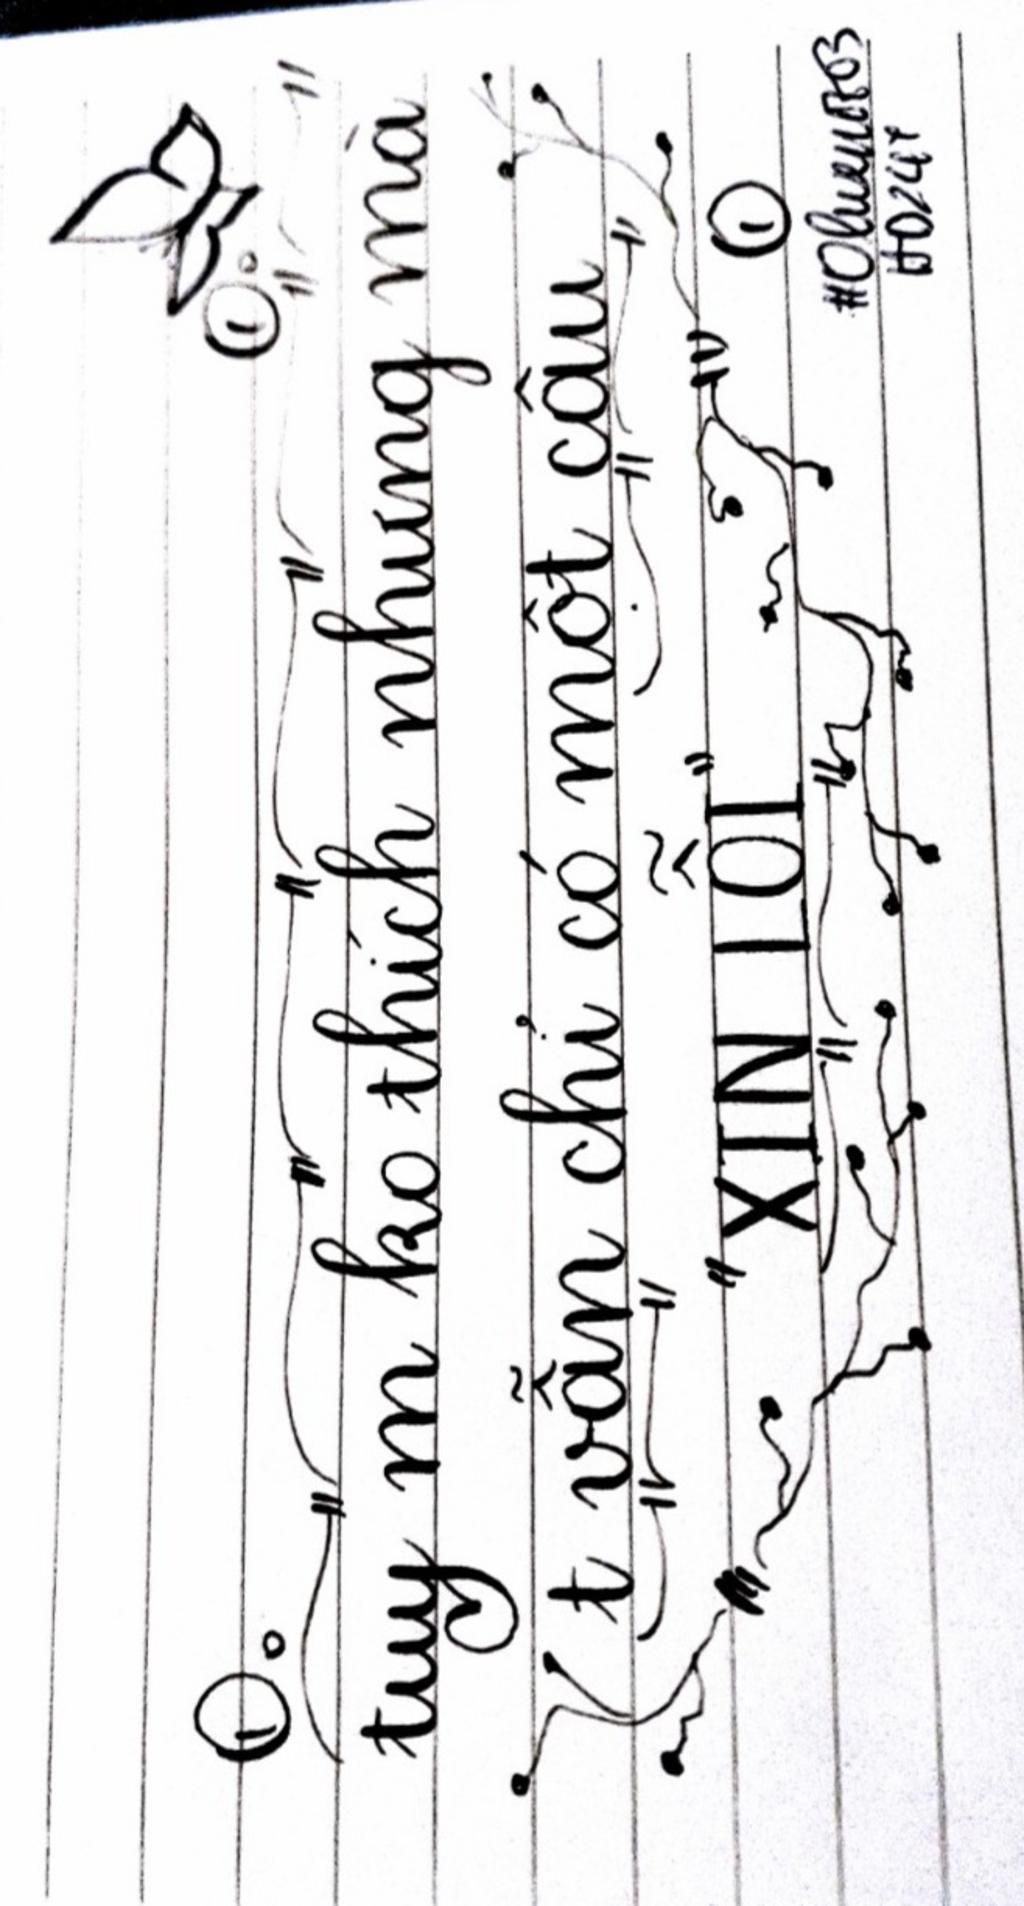 tuy m ko thích nhưng mà
t vẫn chỉ có một câu
" XIN LỖI "